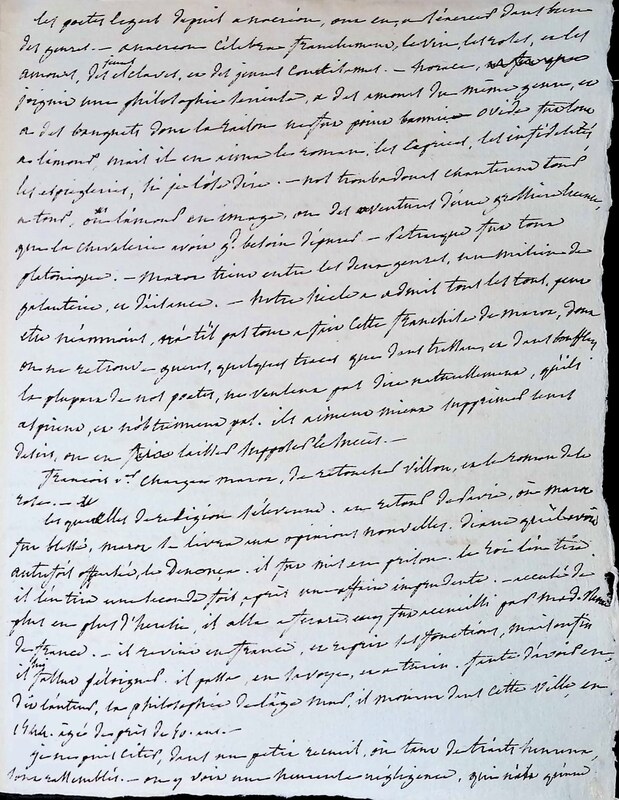 les poetes legers depuis anacréon, ont en general écrit dans bien
des genres. — anacreon célébra franchement, le vin, les roses, et les
amours, des jeunes esclaves, et des jeunes courtisannes. — horace,
joignit une philosophie riante, a des amours du même genre, et
a des banquets dont la raison ne fut point bannie. ovide fut tout
a l'amour, mais il en aima le roman, les caprices, les infidelités,
les espiegleries, si je l'ose dire. — nos troubadours chanterent tous
a tour, ou l'amour en image, ou des aventures d'une grossiere licence,
que la chevalerie avoit gd. besoin d'épurer — Petrarque fut tout
platonique. — Marot tient entre les deux genres, un milieu de
galanterie, et d'aisance. — Notre siecle a admis tous les tons, peut
etre néanmoins, n'a t'il pas tout a fait cette franchise de marot, dont
on ne retrouve guere, quelques traces que dans tressan, et dans boufflers
la plupart de nos poetes, ne veulent pas dire naturellement, qu'ils
aspirent, et n'obtiennent pas. ils aiment mieux supprimer leurs
desirs, ou en laisser supposer le succès. —
françois 1er chargea marot, de retoucher villon, et le roman de la
rose. —
les querelles de religion s'éleverent. au retour de Pavie, où marot
fut blessé, marot se livra aux opinions nouvelles. diane qu'il avoit
autrefois offensée, le dénonça. il fut mis en prison. le roi l'en tira.
il l'en tira une seconde fois, après une affaire imprudente. — accusé de
plus en plus d'heresie, il alla a ferare. ou il fut accueilli par mad. Renée
de france. — il revint en france, et reprit ses fonctions, mais enfin
il fallut s'éloigner. il passa, en savoye, et a turin. faute d'avoir eu,
dix ans, la philosophie de l'âge mur, il mourut dans cette ville, en
1544. agé de près de 50. ans. —
je ne puis citer, dans un petit recueil, où tant de traits heureux,
sont rassemblés. — on y voit une heureuse négligence, qui n'ote qu'une